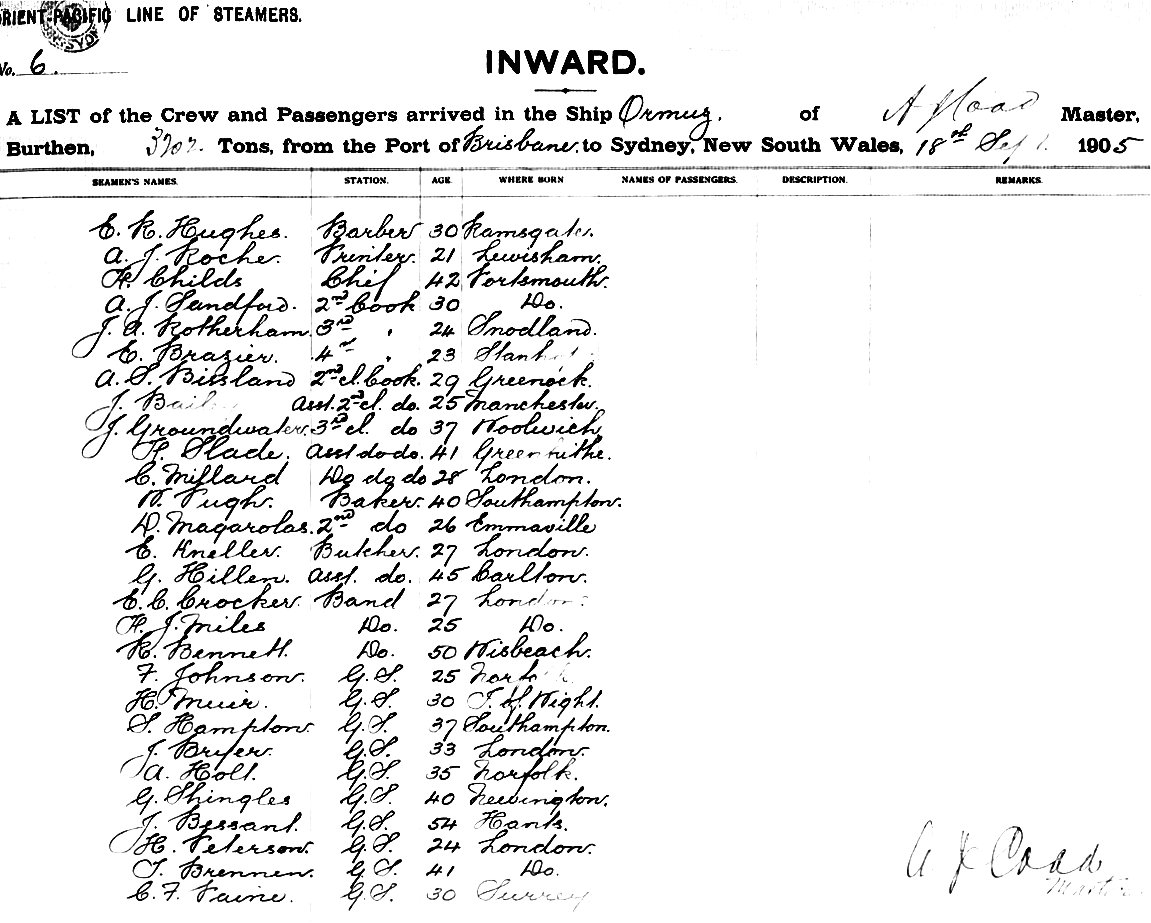 ORIENT-PACIFIC LINE OF STEAMERS.
No. 6.
INWARD.
A LIST of the Crew and Passengers arrived in the Ship Ormuz. of A J Coad Master,
Burthen, 3707. Tons, from the Port of Brisbane. to Sydney, New South Wales, 18th Sept. 1905
SEAMEN'S NAMES. STATION. AGE. WHERE BORN NAMES OF PASSENGERS. DESCRIPTION. REMARKS.
E. R. Hughes. Barber 30 Ramsgate.
A. J. Roche. Printer. 21 Lewisham.
H. Childs Chef 42 Portsmouth.
A. J. Sandford. 2nd Cook 30 Do.
J. A. Rotherham. 3rd " 24 Snodland.
E. Brazier. 4th " 23
A. S. Bissland 2nd cl. Cook. 29 Greenock.
J. Asst. 2nd cl. do. 25 Manchester.
J. Groundwater. 3rd cl. do 37 Woolwich
H. Slade. Asst do do. 41 Greenhithe.
C. Millard Do do do 28 London.
W. Pugh. Baker. 40 Southampton.
D. Magarolas. 2nd do 26 Emmaville
E. Kneller. Butcher. 27 London.
G. Hillen. Asst. do. 45 Carlton.
E. C. Crocker. Band 27 London.
H. J. Miles Do. 25 Do.
R. Bennett. Do. 50 Wisbeach.
F. Johnson. G.S. 25
H. Muir. G.S. 30 I. of Wight.
S. Hampton. G.S. 37 Southampton.
J. Bryer. G.S. 33 London.
A. Holt. G.S. 35 Norfolk.
G. Shingles G.S. 40 Newington.
J. Bessant. G.S. 54 Hants.
H. Peterson. G.S. 24 London.
T. Brennen. G.S. 41 Do.
C. F. Paine. G.S. 30 Surrey
A J Coad
Master